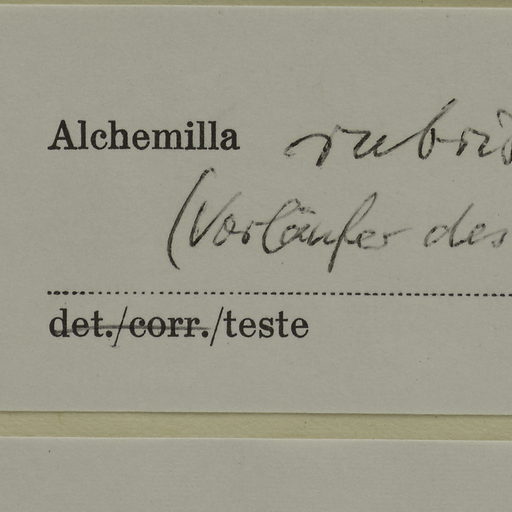 Alchemilla rubri
(Vorläufer des
det./corr./teste